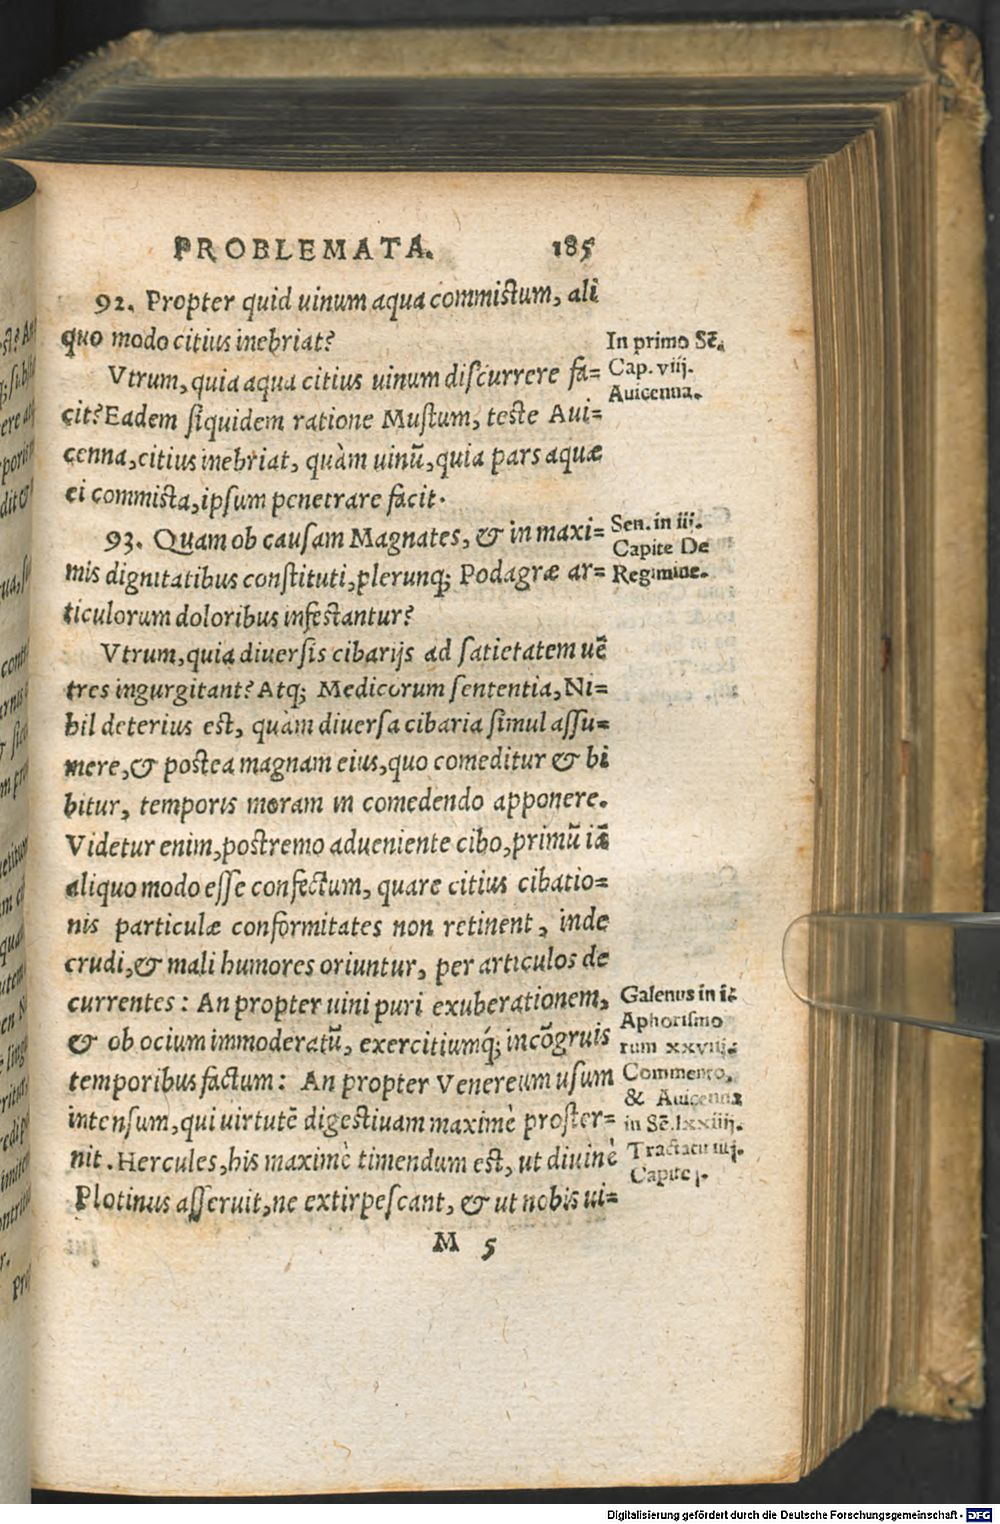 PROBLEMATA. 185
92. Propter quid uinum aqua commistum, ali
quo modo citius inebriat?
Vtrum, quia aqua citius uinum discurrere fa=
cit? Eadem siquidem ratione Mustum, teste Aui=
cenna, citius inebriat, quàm uinũ, quia pars aquæ
ei commista, ipsum penetrare facit.
In primo Sẽ.
Cap. viij.
Auicenna.
93. Quam ob causam Magnates, & in maxi=
mis dignitatibus constituti, plerunq; Podagræ ar=
ticulorum doloribus infestantur?
Sen. in iij.
Capite De
Regimine.
Vtrum, quia diuersis cibarijs ad satietatem uẽ
tres ingurgitant? Atq; Medicorum sententia, Ni=
hil deterius est, quàm diuersa cibaria simul assu=
mere, & postea magnam eius, quo comeditur & bi
bitur, temporis moram in comedendo apponere.
Videtur enim, postremo adueniente cibo, primũ iã
aliquo modo esse confectum, quare citius cibatio=
nis particulæ conformitates non retinent, inde
crudi, & mali humores oriuntur, per articulos de
currentes: An propter uini puri exuberationem,
& ob ocium immoderatũ, exercitiumq́; incõgruis
temporibus factum: An propter Venereum usum
intensum, qui uirtutẽ digestiuam maximè proster=
nit. Hercules, his maximè timendum est, ut diuinè
Plotinus asseruit, ne extirpescant, & ut nobis ui=
Galenus in
Aphorismo
rum xxviij.
Commento,
& Auicenna
in Sẽ. lxxiiij.
Tractatu iiij.
Capite j.
M 5
Digitalisierung gefördert durch die Deutsche Forschungsgemeinschaft - DFG